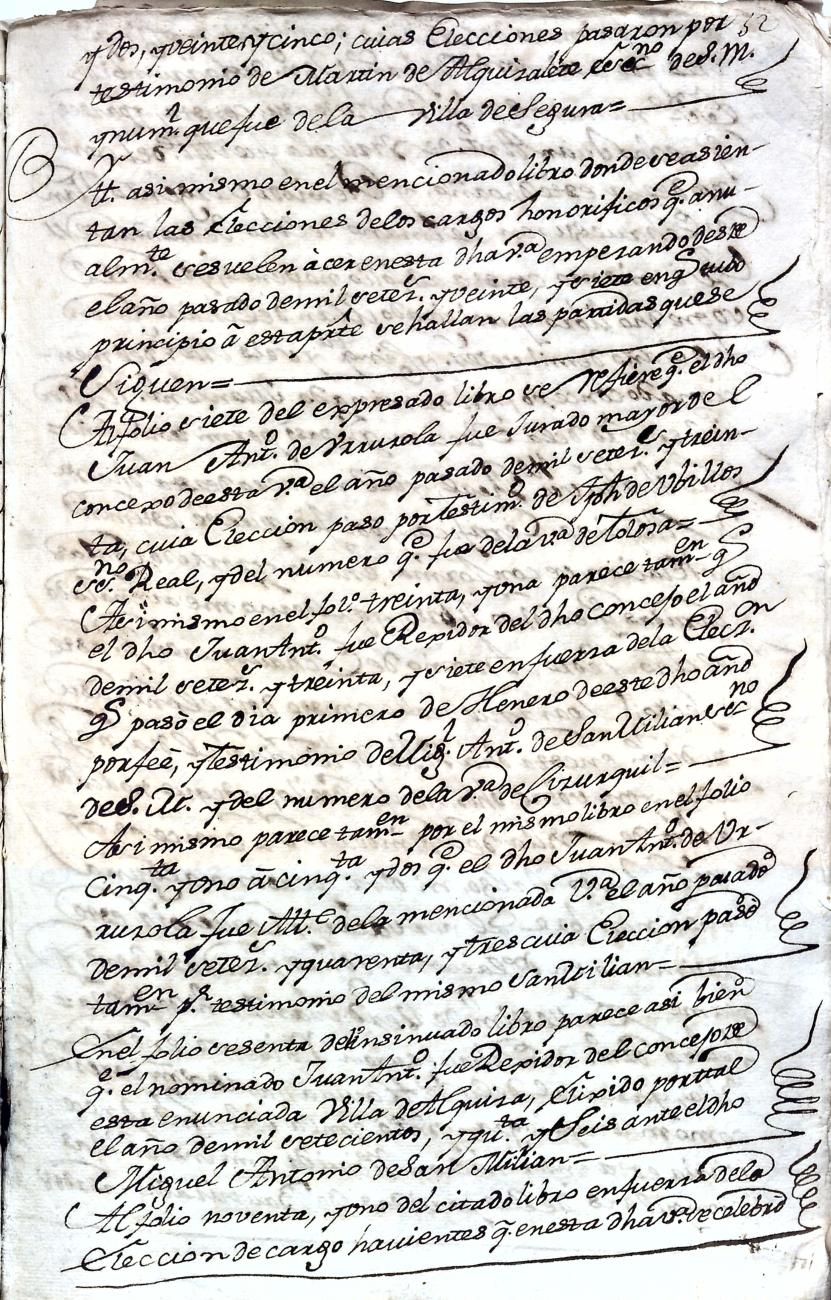 52
y dos, yveinte y cinco; cuias Elecciones pasaron por
testimonio de Martin de Alquizalete essno de S. M.
ynuml. que fue dela Villa de Segura=
Yt. asimismo enel mencionado libro donde se asien-
tan las Elecciones delos cargos honorificos qe. anu-
almte. se suelen àcer enesta dha va. empezando desde
el año pasado demil setezs. yveinte, ysiete en qe tubo
principio â esta prte se hallan las partidas que se
Siguen=
Alfolio siete del expresado libro se refiere qe. el dho
Juan Anto. de Urrurola fue Jurado mayor del
concexo deesta va. el año pasado demil setezs. ytrein-
ta, cuia Eleccion paso por Testimo. de Jph de Ubillos
essno. Real, ydel numero qe. fue dela va. de Tolosa=
Asimismo enel folo. treinta, yuno parece tamen q
el dho Juan Anto. fue Rexidor del dho concejo el año
demil setezs. ytreinta, ysiete en fuerza dela Eleczon.
q pasò el dia primero de Henero deeste dho año
porfeè, yTestimonio de Migl. Anto. de San Milian essno
de S. M. ydel numero dela va. de Ezurquil=
Asimismo parece tamen por el mismo libro enel folio
Cinqta. yuno â cinqta. ydos qe. el dho Juan Anto. de Ur-
rurola fue Alle. dela mencionada Va. el año pasado
demil setezs. yquarenta, ytres cuia Eleccion pasò
tamen pr. testimonio del mismo San Milian=
Enel folio sesenta del insinuado libro parece asi bien
qe. el nominado Juan Anto. fue Rexidor del concejo de
esta enunciada Villa de Alquiza, Elixido por ttal
el año demil setecientos, yquta. y Seis ante el dho
Miguel Antonio de San Milian=
Al folio noventa, yuno del citado libro en fuerza dela
Eleccion de cargo havientes q. enesta dha va. se celebrò